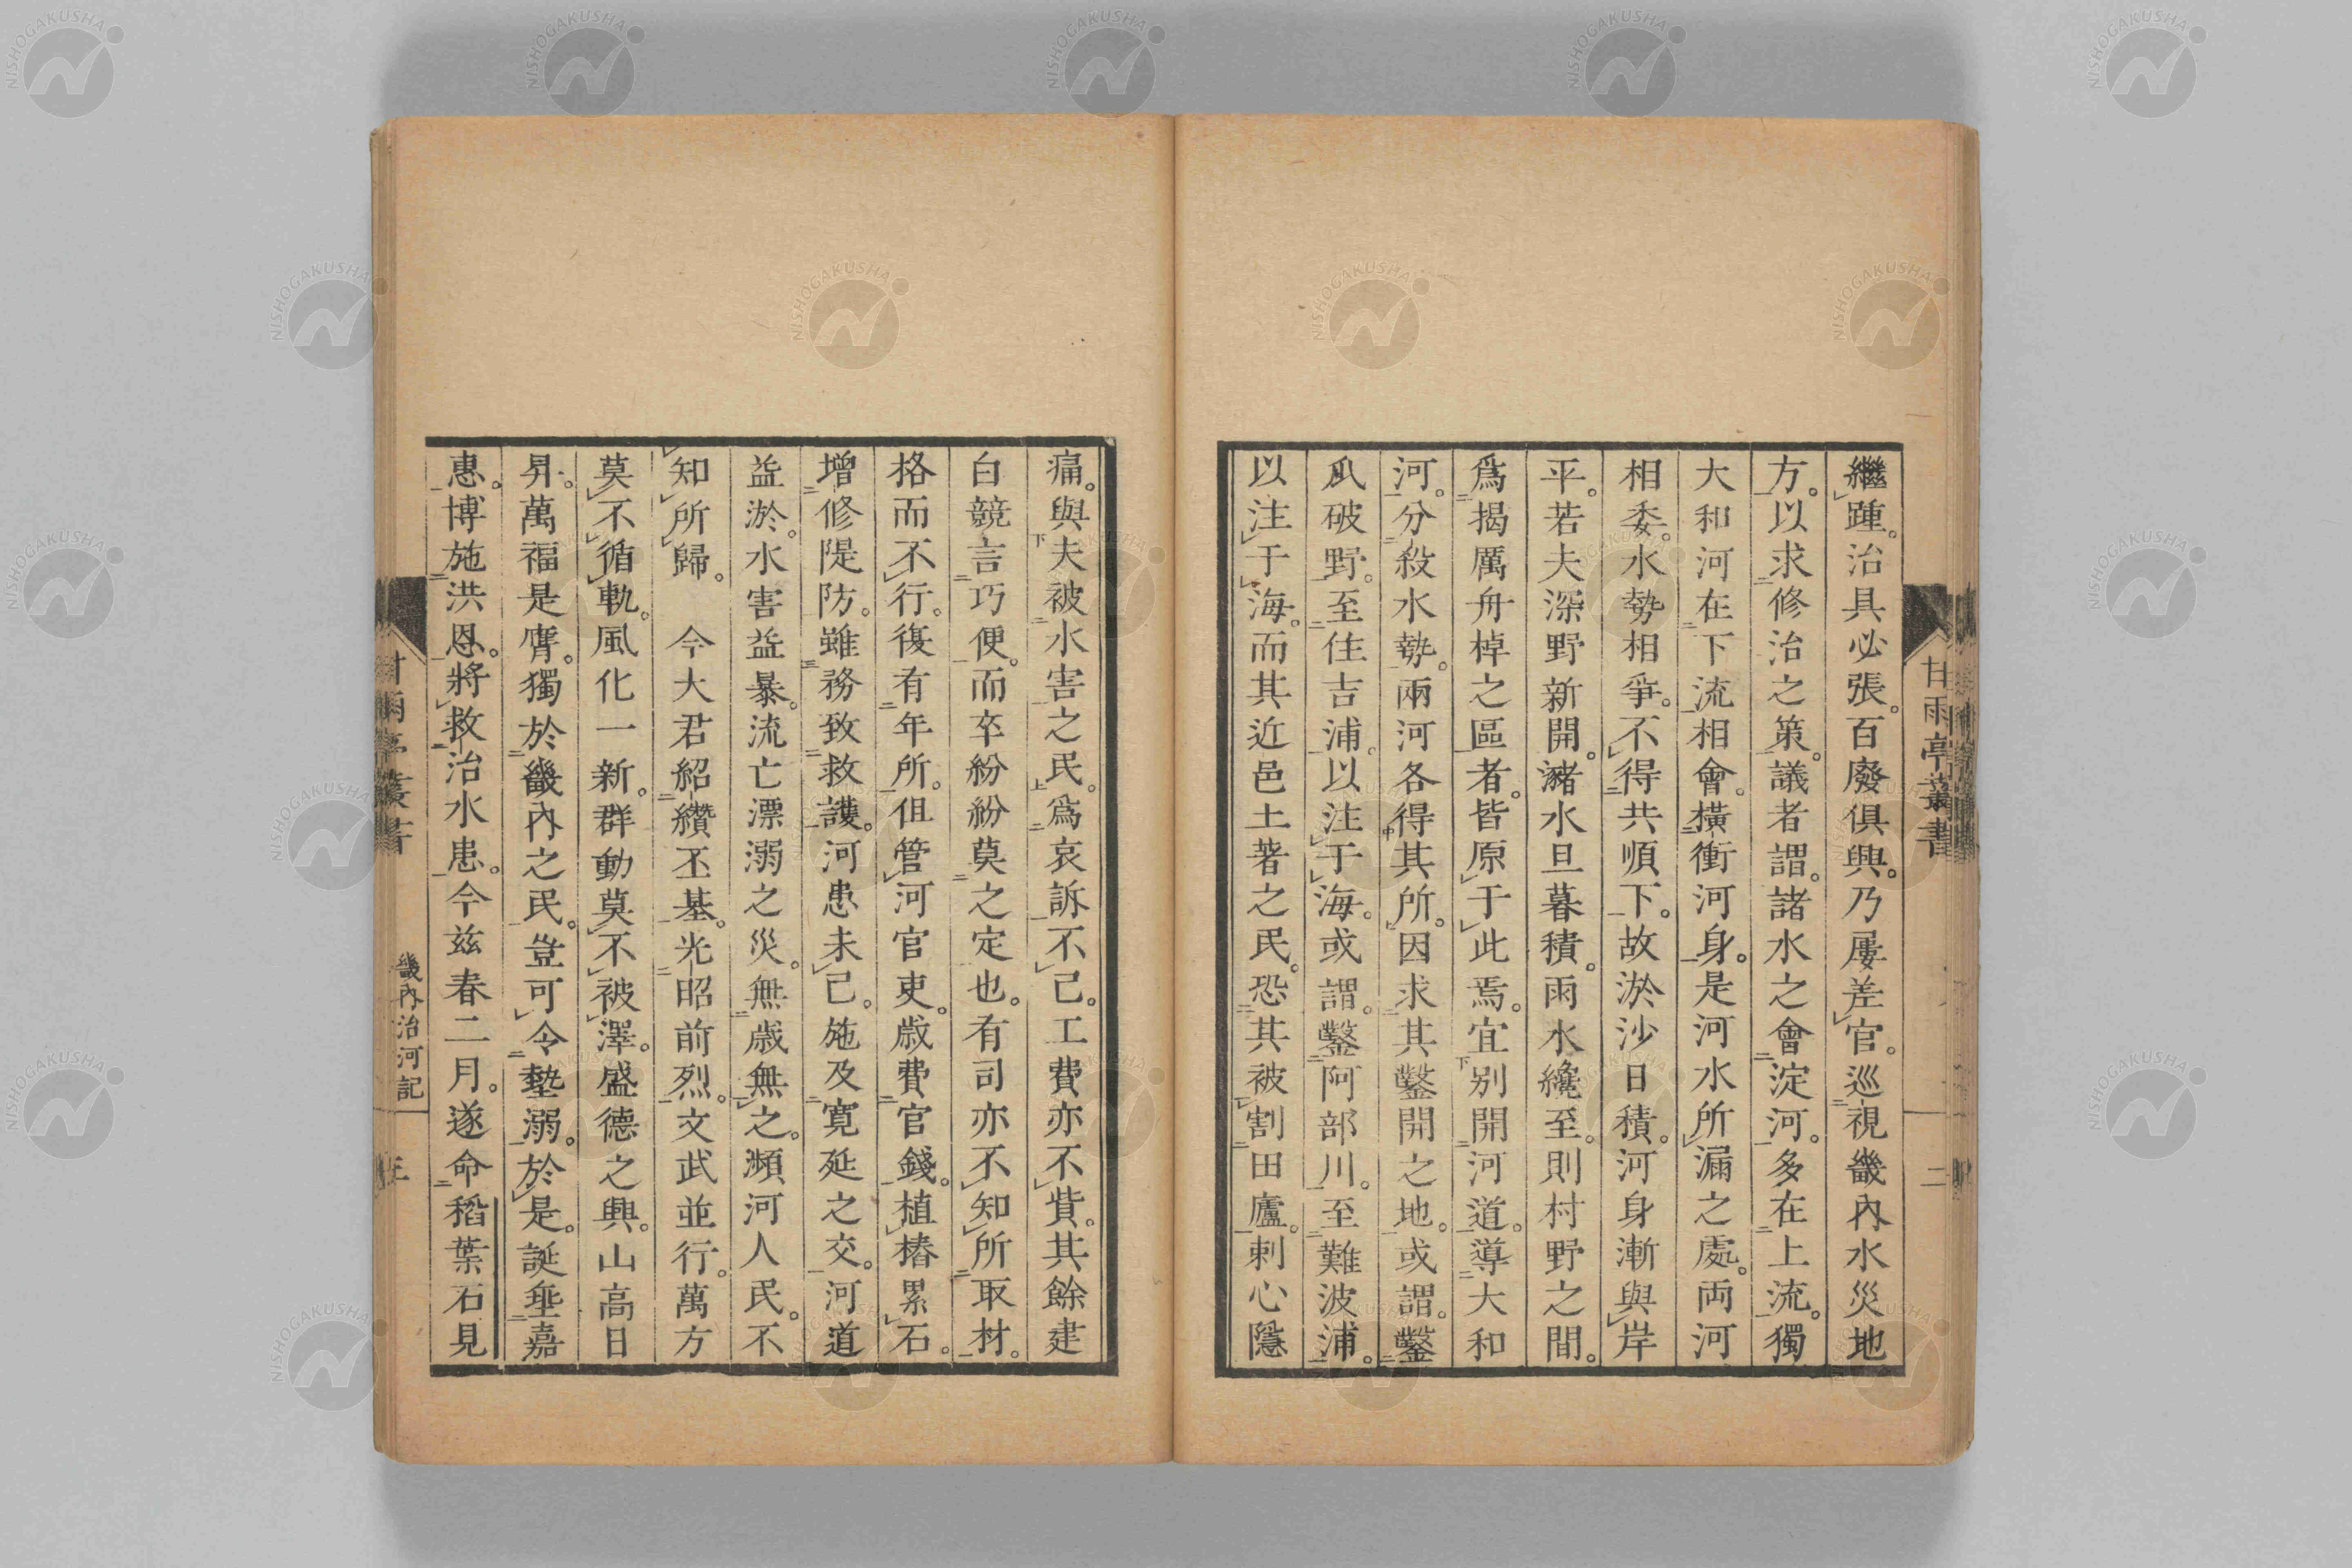 甘雨亭叢書
二
繼踵。治具必張。百廢俱興。乃屢差官。巡視畿內水災地
方。以求修治之策。議者謂。諸水之會淀河。多在上流。獨
大和河在下流相會。橫衝河身。是河水所漏之處。両河
相委。水勢相爭。不得共順下。故淤沙日積。河身漸與岸
平。若夫深野新開。瀦水旦暮積。雨水纔至。則村野之間。
爲揭厲舟棹之區者。皆原于此焉。宜別開河道。導大和
河。分殺水勢。兩河各得其所。因求其鑿開之地。或謂。鑿
爪破野。至住吉浦。以注于海。或謂。鑿阿部川。至難波浦。
以注于海。而其近邑土著之民。恐其被割田廬。剌心隱
痛。與夫被水害之民。爲哀訴不已。工費亦不貲。其餘建
白競言巧便。而卒紛紛莫之定也。有司亦不知所取材。
格而不行。復有年所。但管河官吏。歲費官錢。植樁累石。
增修隄防。雖務致救護。河患未已。施及寬延之交。河道
益淤。水害益暴。流亡漂溺之災。無歲無之。瀕河人民。不
知所歸。　今大君紹纘丕基。光昭前烈。文武並行。萬方
莫不循軌。風化一新。群動莫不被澤。盛德之興。山高日
昇。萬福是膺。獨於畿內之民。豈可令墊溺。於是。誕垂嘉
惠。博施洪恩。將救治水患。今茲春二月。遂命稻葉石見
甘雨亭叢書
畿內治河記
三